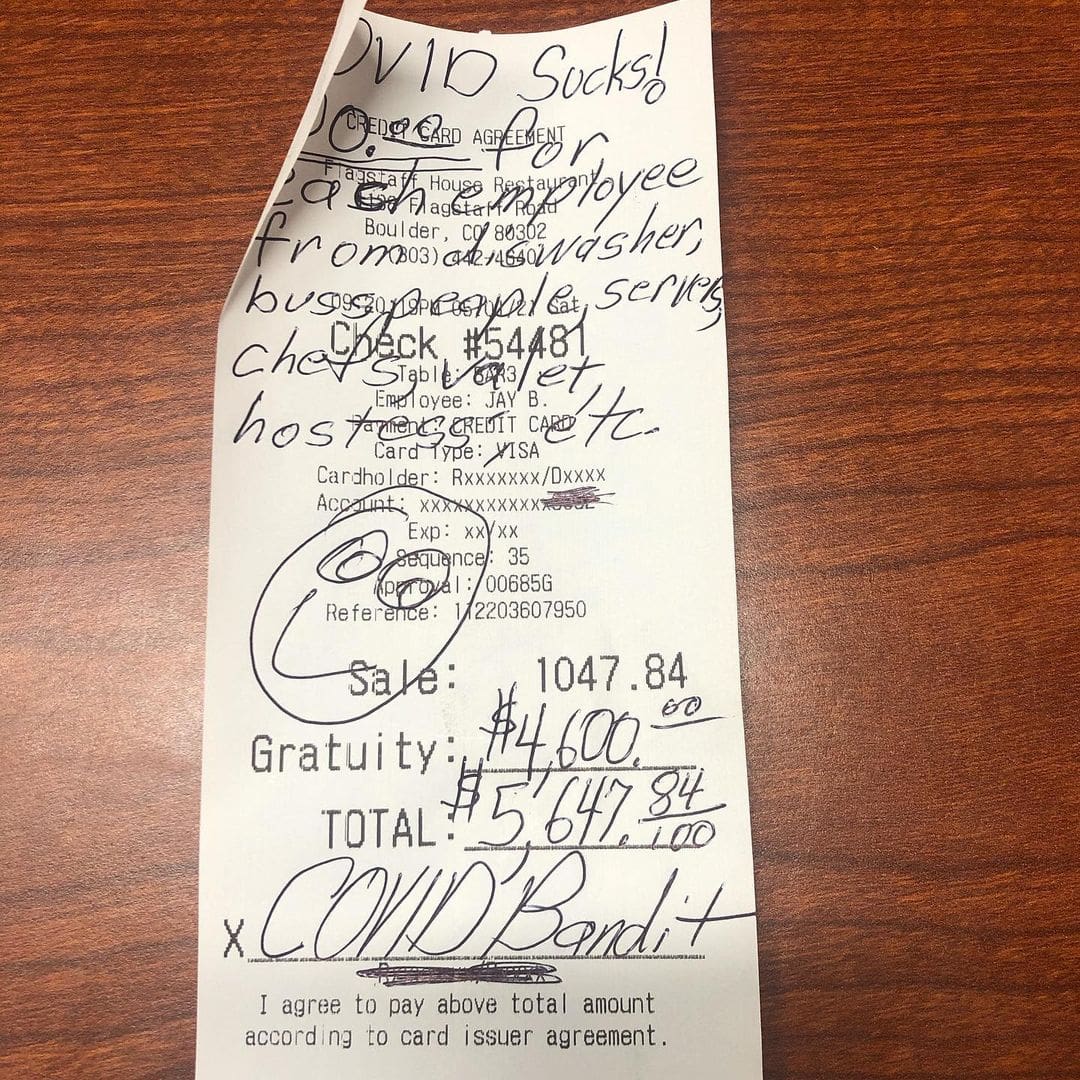 OVID Sucks!
00.00 for
CREDIT CARD AGREEMENT
Flagstaff House Restaurant
each employee
Flagstaff Road
Boulder, CO 80302
from diswasher,
(303) 442-4640
busspeople, servers,
Sat
Check #54481
chefs, valet,
Table: BAR3
Employee: JAY B.
hostess, etc.
Payment: CREDIT CARD
Card Type: VISA
Cardholder: Rxxxxxxx/Dxxxx
Account: xxxxxxxxxxxx
Exp: xx/xx
Sequence: 35
Approval: 00685G
Reference: 112203607950
Sale: 1047.84
Gratuity: $4,600.00
TOTAL: $5,647.84/100
X COVID Bandit
I agree to pay above total amount
according to card issuer agreement.